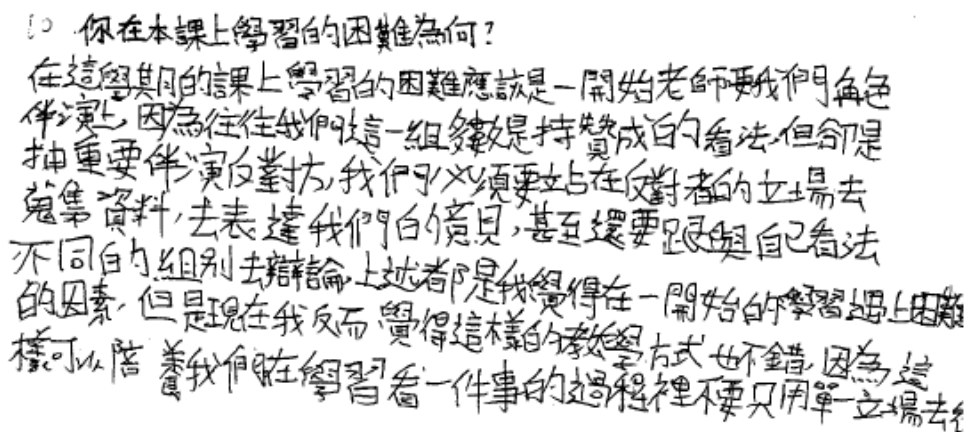 10 你在本課上學習的困難為何?
在這學期的課上學習的困難應該是一開始老師要我們角色
伴演上,因為往往我們這一組多數是持贊成的看法,但卻是
抽重要伴演反對方,我們必須要站在反對者的立場去
蒐集資料,去表達我們的意見,甚至還要跟與自己看法
不同的組別去辯論,上述都是我覺得在一開始的學習遇上困難
的因素,但是現在我反而覺得這樣的教學方式也不錯,因為這
樣可以陪養我們在學習看一件事的過程裡不要只用單一立場去